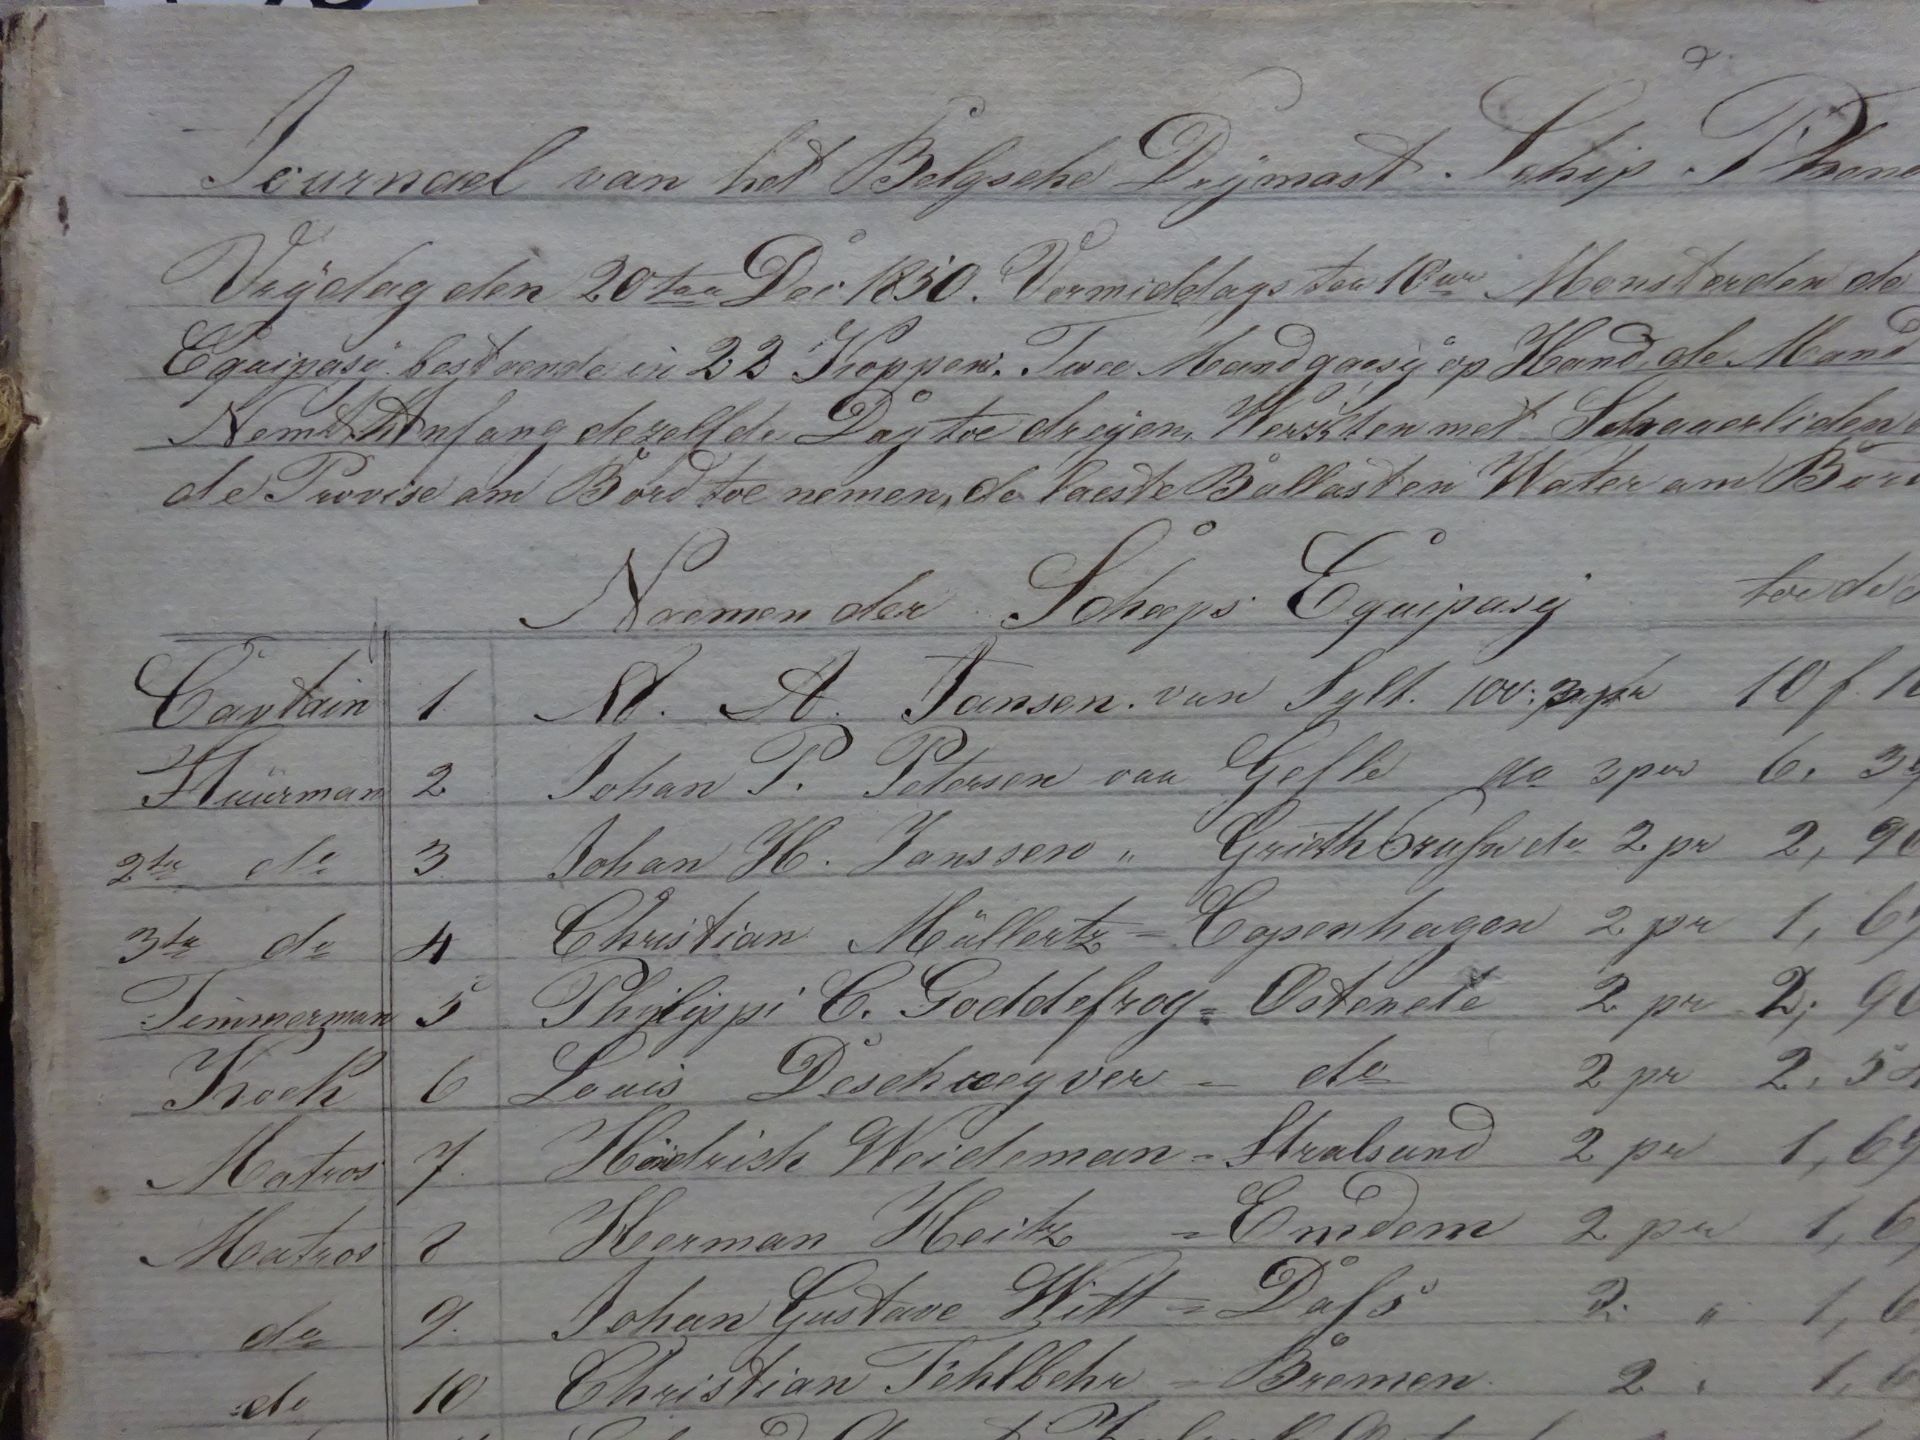 Journael van het Belgsche Drymast Schip
Vrydag den 20ten Dec 1850. Vormiddags ten 10 uur Monsterden de
Equipasy bestaende in 22 Koppen. Twee Mand gaesy op Hand, de Mand
Nemt Anfang dezelfde Dag toe dreyen, Werkten met Schauerliden
de Provise am Bord toe nemen, de laeste Ballast en Water am Bord
Naemen der Schaeps Equipasy toe de
Captain 1 N. A. Jansen. van Sylt. 10 f
Stüürman 2 Johan P. Petersen van Gefle do 3 pr 6. 39
2te do 3 Johan H. Janssen " do 2 pr 2, 90
3te do 4 Christian Müllertz = Copenhagen 2 pr 1, 69
Timmerman 5 Philippi C. Goddefroy = Ostende 2 pr 2, 90
Kock 6 Louis Deschweyver = do 2 pr 2, 54
Matros 7. Hindrich Weideman = Stralsund 2 pr 1, 69
Matros 8 Herman Heitz = Emdem 2 pr 1, 6
do 9. Johan Gustave Witt = 2 " 1, 6
do 10 Christian Fehlbehr = Bremen. 2 " 1, 6